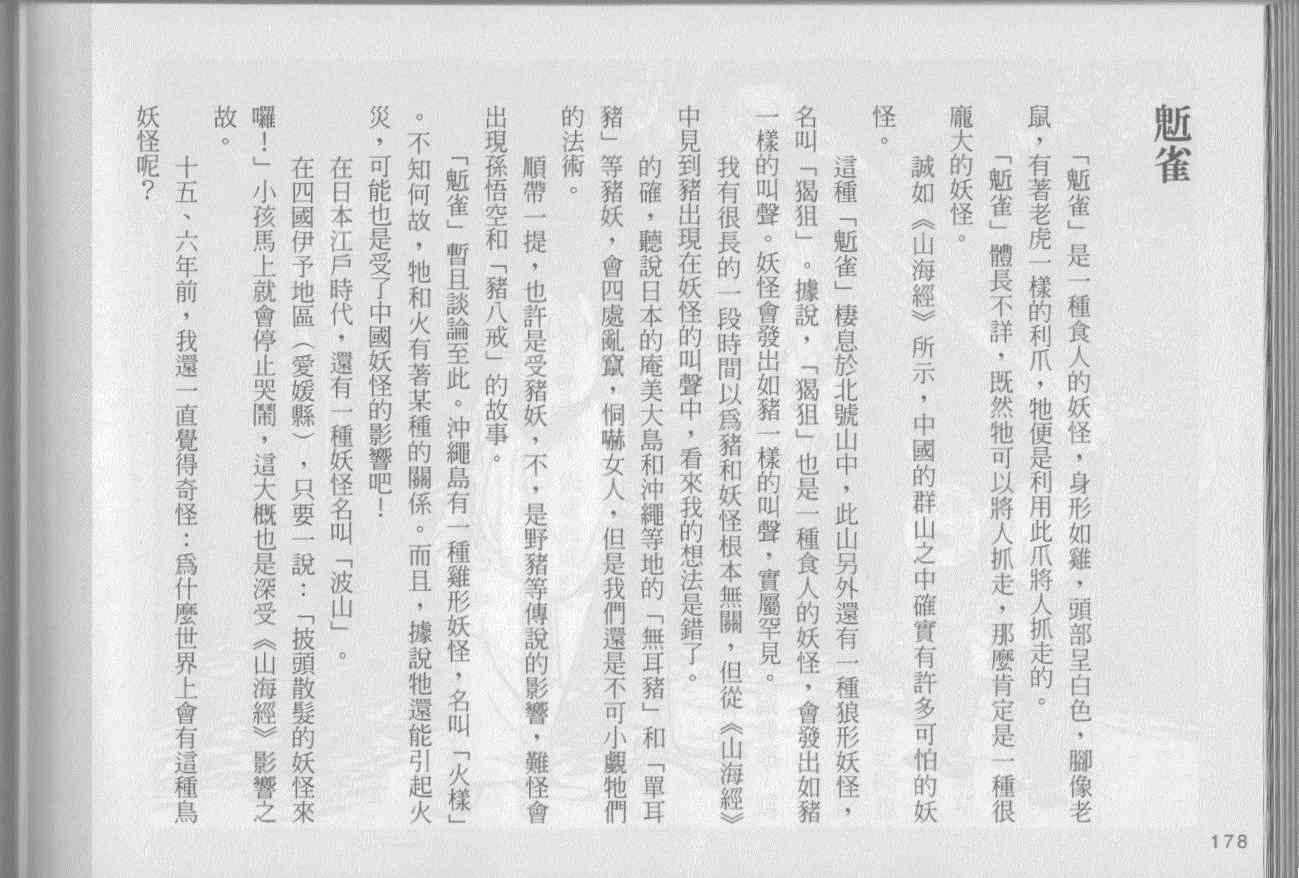 魁雀
「魁雀」是一種食人的妖怪，身形如雞，頭部呈白色，腳像老
鼠，有著老虎一樣的利爪，牠便是利用此爪將人抓走的。
「魁雀」體長不詳，既然牠可以將人抓走，那麼肯定是一種很
龐大的妖怪。
誠如《山海經》所示，中國的群山之中確實有許多可怕的妖
怪。
這種「魁雀」棲息於北號山中，此山另外還有一種狼形妖怪，
名叫「猲狙」。據說，「猲狙」也是一種食人的妖怪，會發出如豬
一樣的叫聲。妖怪會發出如豬一樣的叫聲，實屬罕見。
我有很長的一段時間以爲豬和妖怪根本無關，但從《山海經》
中見到豬出現在妖怪的叫聲中，看來我的想法是錯了。
的確，聽說日本的庵美大島和沖繩等地的「無耳豬」和「單耳
豬」等豬妖，會四處亂竄，恫嚇女人，但是我們還是不可小覷牠們
的法術。
順帶一提，也許是受豬妖，不，是野豬等傳說的影響，難怪會
出現孫悟空和「豬八戒」的故事。
「魁雀」暫且談論至此。沖繩島有一種雞形妖怪，名叫「火樣」
。不知何故，牠和火有著某種的關係。而且，據說牠還能引起火
災，可能也是受了中國妖怪的影響吧！
在日本江戶時代，還有一種妖怪名叫「波山」。
在四國伊予地區（愛媛縣），只要一說：「披頭散髮的妖怪來
囉！」小孩馬上就會停止哭鬧，這大概也是深受《山海經》影響之
故。
十五、六年前，我還一直覺得奇怪：爲什麼世界上會有這種鳥
妖怪呢？
178